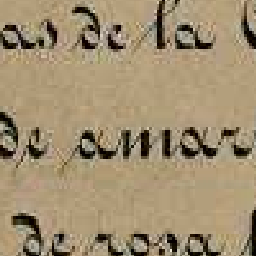 as de la
de amar
de rosa